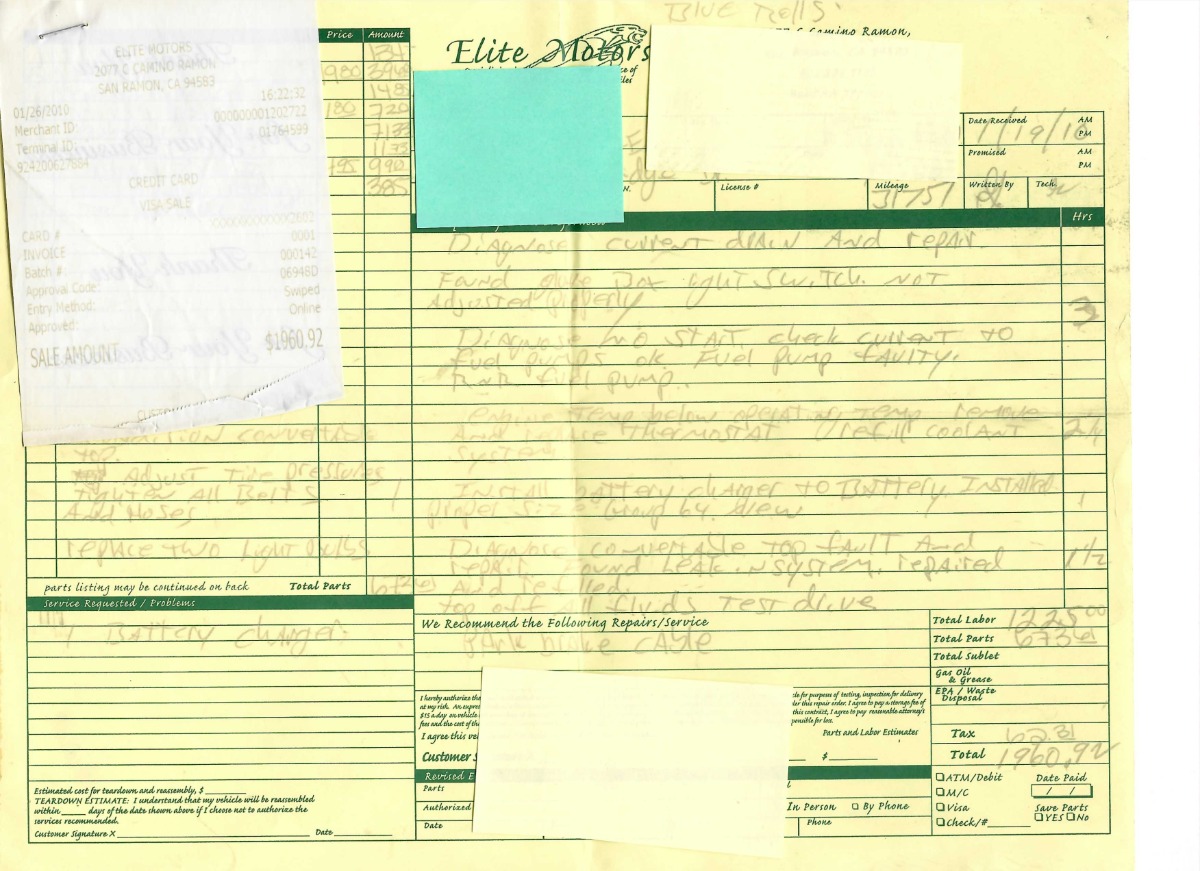 BLUE Bells
Elite Motors
Camino Ramon,
ELITE MOTORS
2077 C CAMINO RAMON
SAN RAMON, CA 94583
01/26/2010 16:22:32
Merchant ID: 000000001202722
Terminal ID: 01764599
924200627884
CREDIT CARD
VISA SALE
CARD # 0000000000002602
INVOICE 0001
Batch #: 000142
Approval Code: 06948D
Entry Method: Swiped
Approved: Online
SALE AMOUNT $1960.92
Price Amount
Date Received AM
1/19/10 PM
Promised AM
PM
License # Mileage Written By Tech.
31751
Hrs
Diagnose current drain And repair.
Found glove Box light Switch. NOT
Adjusted Properly
Diagnose NO START. check current to
Fuel pumps ok. Fuel Pump FAULTY.
RNR fuel pump.
engine Temp below operating Temp remove
And replace Thermostat / refill coolant
System
Install Battery charger to Battery. Installed
proper Size Group 64. New
Diagnose convertable top fault And
repair. Found Leak in system. repaired 1 1/2
And refilled
top off all fluids Test drive
convertible
top.
Adjust Tire pressures
Tighten All Belts 1
And Hoses
replace two Light bulbs
parts listing may be continued on back Total Parts
Service Requested / Problems
1 Battery charger
We Recommend the Following Repairs/Service
park brake cable
Total Labor 1225 00
Total Parts 673 61
Total Sublet
Gas Oil
& Grease
EPA / Waste
Disposal
Tax 62.31
Total 1960.92
I hereby authorize the
at my risk. An express
$15 a day on vehicle
fees and the cost of the
I agree this ve
le for purposes of testing, inspection for delivery
der this repair order. I agree to pay a storage fee of
this contract, I agree to pay reasonable attorney's
ponsible for loss.
Parts and Labor Estimates
Customer S $
Revised E
Parts
Authorized In Person By Phone
Date Phone
ATM/Debit Date Paid
M/C / /
Visa Save Parts
Check/# YES No
Estimated cost for teardown and reassembly, $
TEARDOWN ESTIMATE: I understand that my vehicle will be reassembled
within days of the date shown above if I choose not to authorize the
services recommended.
Customer Signature X Date